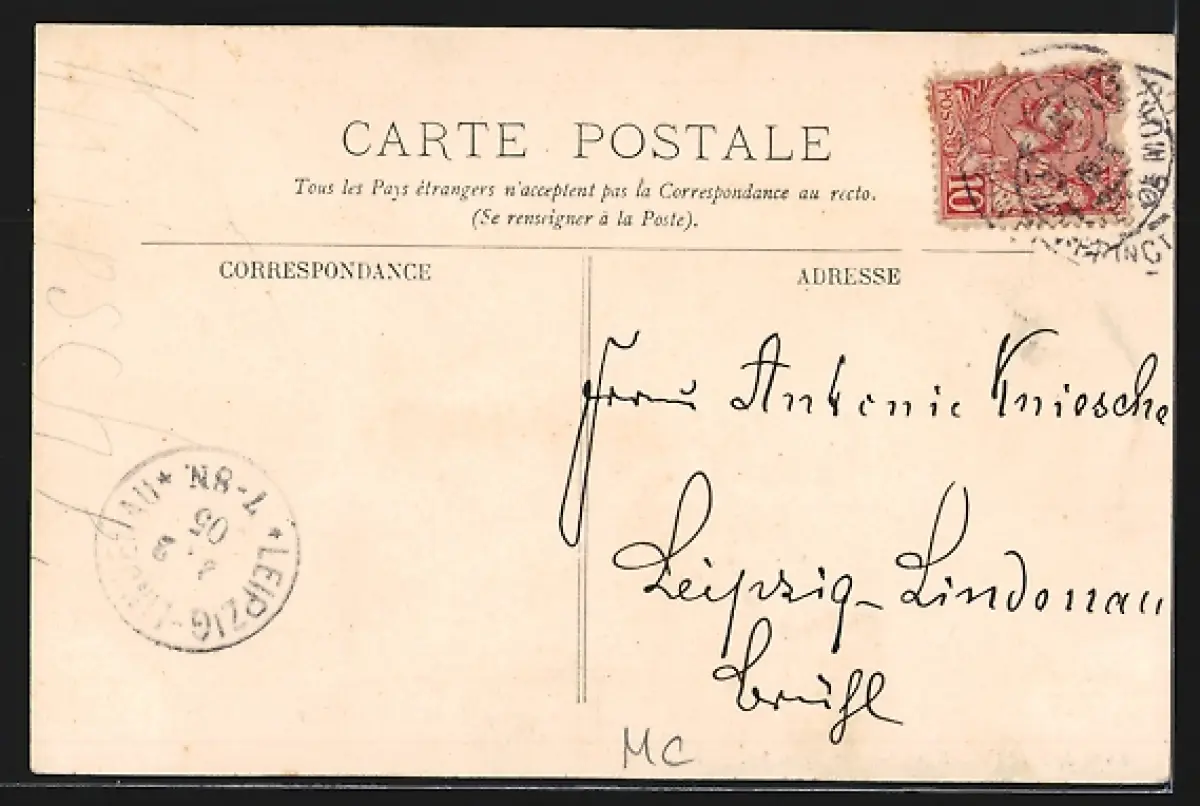 CARTE POSTALE
Tous les Pays étrangers n'acceptent pas la Correspondance au recto.
(Se renseigner à la Poste).
CORRESPONDANCE
ADRESSE
Frau Antonie Kniesche
Leipzig-Lindenau
Brühl
MC
10
LEIPZIG-LINDENAU
7-8N.
05